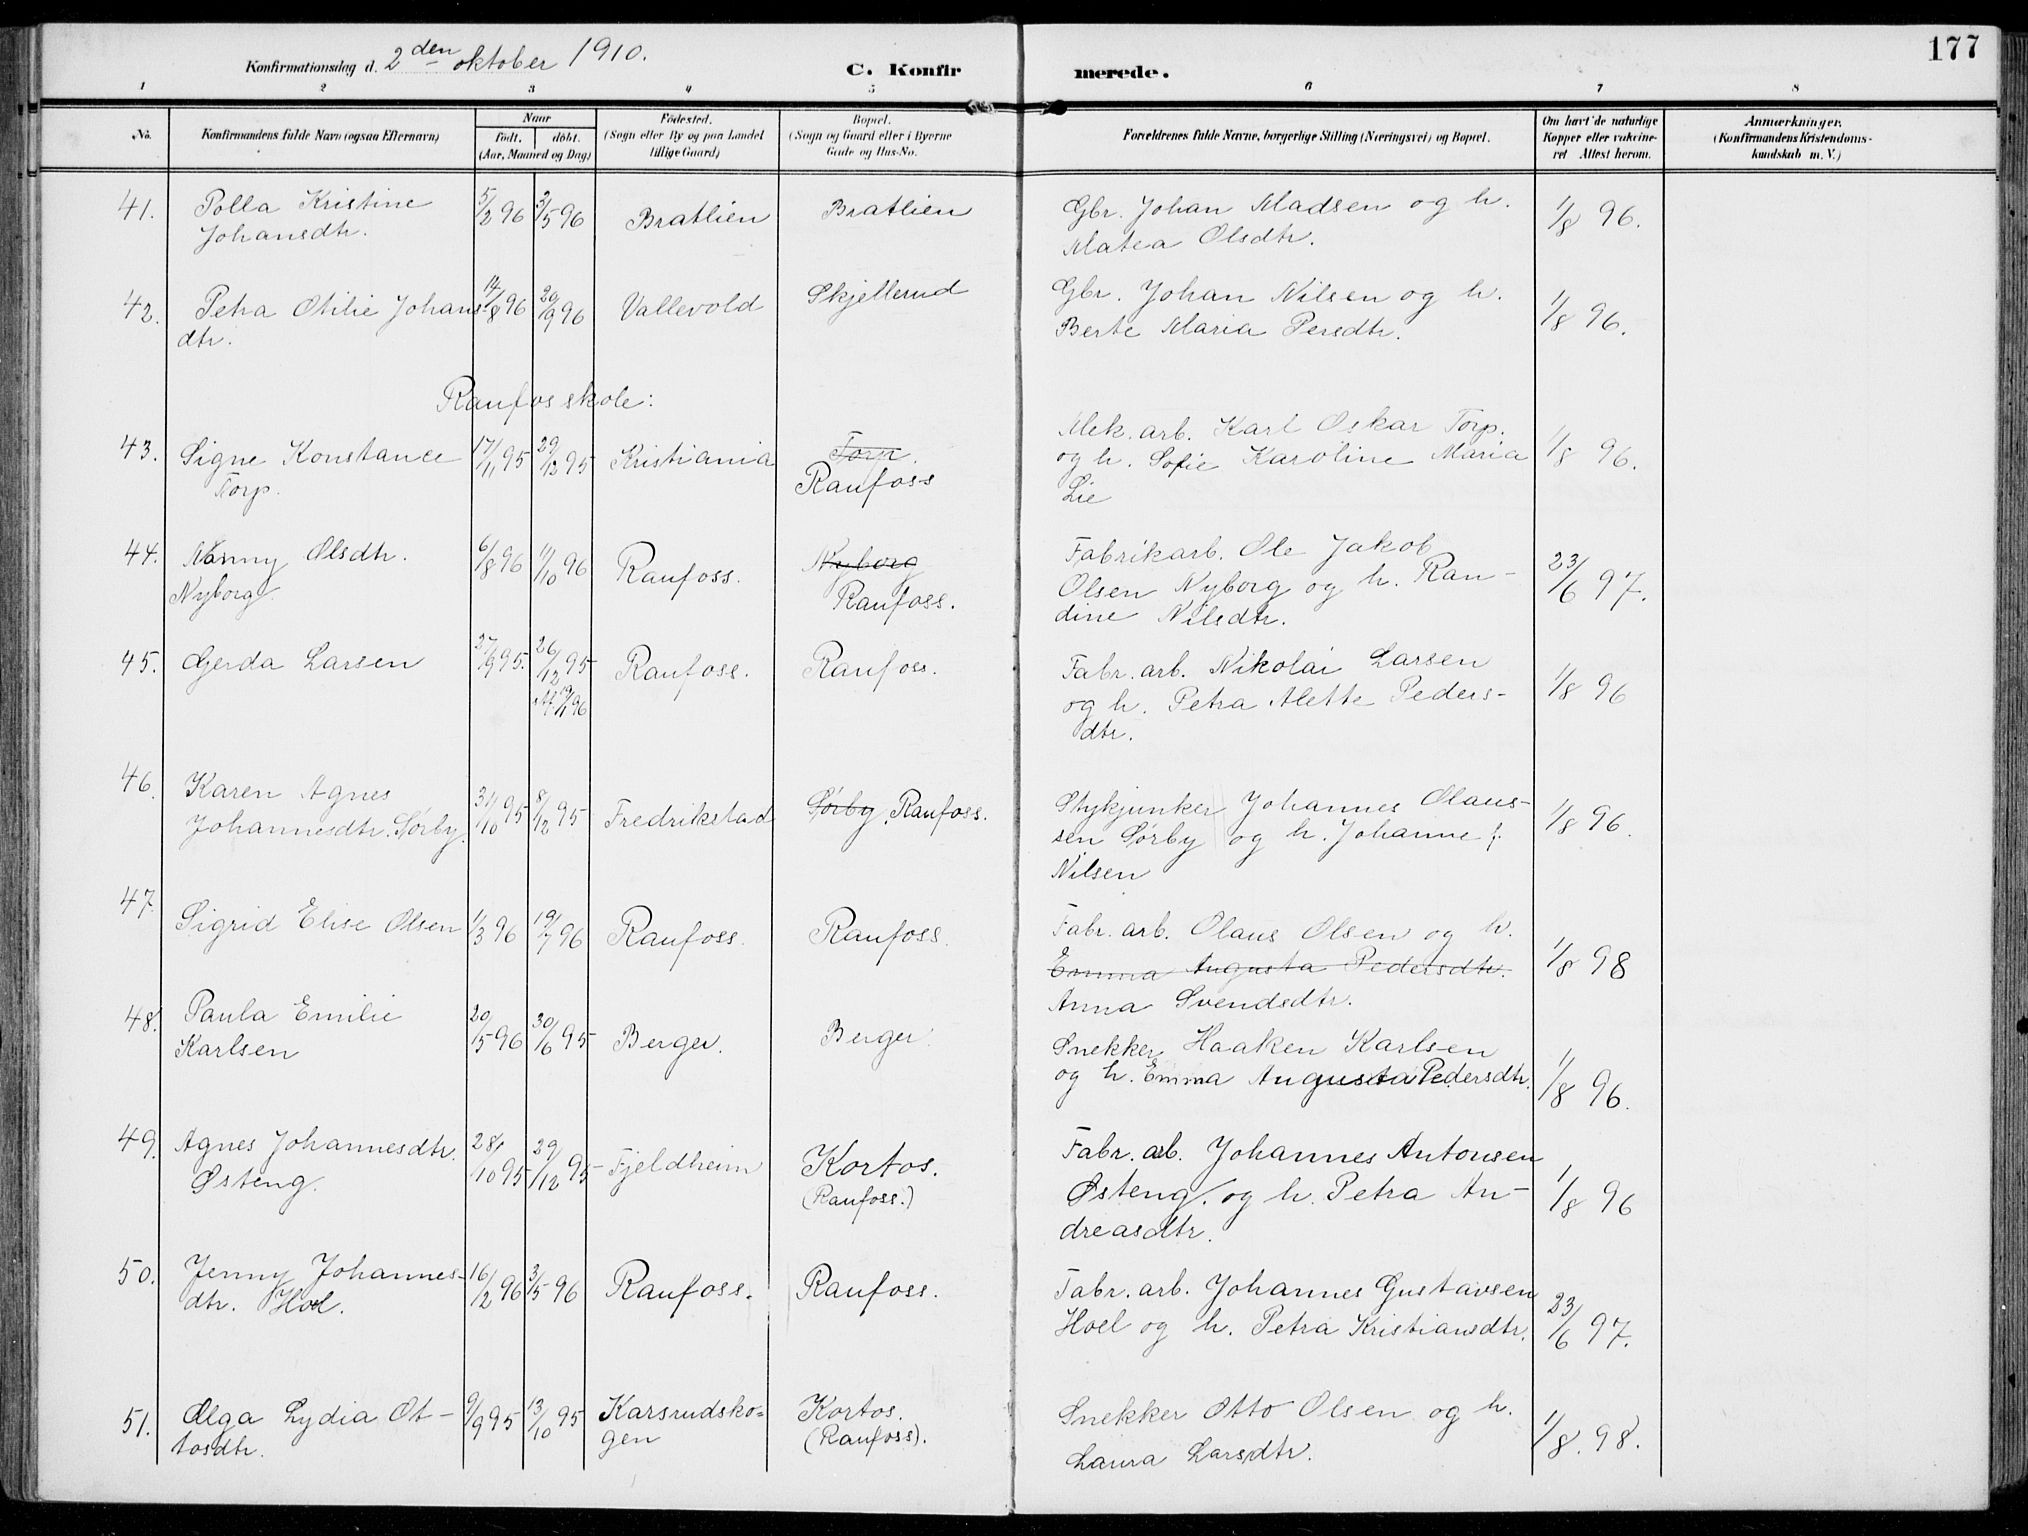 Konfirmationsdag d. 2den oktober 1910.
C. Konfirmerede.
177
1 2 3 4 5 6 7 8
No.
Konfirmandens fulde Navn (ogsaa Efternavn)
Naar
født. døbt.
(Aar, Maaned og Dag)
Fødested.
(Sogn eller By og paa Landet
tillige Gaard)
Bopæl.
(Sogn og Gaard eller i Byerne
Gade og Hus-No.
Forældrenes fulde Navne, borgerlige Stilling (Næringsvei) og Bopæl.
Om havt de naturlige
Kopper eller vakcine-
ret Attest herom.
Anmærkninger,
(Konfirmandens Kristendoms-
kundskab m. V.)
41. Polla Kristine 5/2 96 3/5 96 Bratlien Bratlien Gbr. Johan Madsen og h. 1/8 96.
Johansdtr. Matea Olsdtr.
42. Petra Otilie Johans- 14/8 96 20/9 96 Vallevold Skjellerud Gbr. Johan Nilsen og h. 1/8 96.
dtr. Berte Maria Persdtr.
Raufos skole:
43. Signe Konstance 17/11 95 29/12 95 Kristiania Torp. Mek. arb. Karl Oskar Torp. 1/8 96.
Torp. Raufoss og h. Sofie Karoline Maria
Lie
44. Nanny Olsdtr. 6/8 96 11/10 96 Raufoss. Nyborg Fabrikarb. Ole Jakob 23/6 97.
Nyborg Raufoss. Olsen Nyborg og h. Ran-
dine Nilsdtr.
45. Gerda Larsen 27/9 95. 26/12 95 Raufoss. Raufoss. Fabr. arb. Nikolai Larsen 1/8 96
og h. Petra Alette Peders-
dtr.
46. Karen Agnes 31/10 95 8/12 95 Fredrikstad Sørby, Raufoss. Stykjunker Johannes Olaus- 1/8 96.
Johannesdtr. Sørby. sen Sørby og h. Johanne f.
Nilsen
47. Sigrid Elise Olsen 1/3 96 19/7 96 Raufoss. Raufoss. Fabr. arb. Olaus Olsen og h. 1/8 98
Emma Augusta Pedersdtr.
Anna Svendsdtr.
48. Paula Emilie 20/5 96 30/6 95 Berger. Berger. Snekker Haaken Karlsen 1/8 96.
Karlsen og h. Emma Augusta Pedersdtr.
49. Agnes Johannesdtr. 28/10 95 29/12 95 Fjeldheim Kortos. Fabr. arb. Johannes Antonsen 1/8 96
Østeng. (Raufoss.) Østeng. og h. Petra An-
dreasdtr.
50. Jenny Johannes- 16/2 96 3/5 96 Raufoss. Raufoss. Fabr. arb. Johannes Gustavsen 23/6 97.
dtr. Hoel. Hoel og h. Petra Kristiansdtr.
51. Olga Lydia Ot- 9/9 95 13/10 95 Karsrudsko- Kortos. Snekker Otto Olsen og h. 1/8. 98.
tosdtr. gen (Raufoss). Laura Larsdtr.